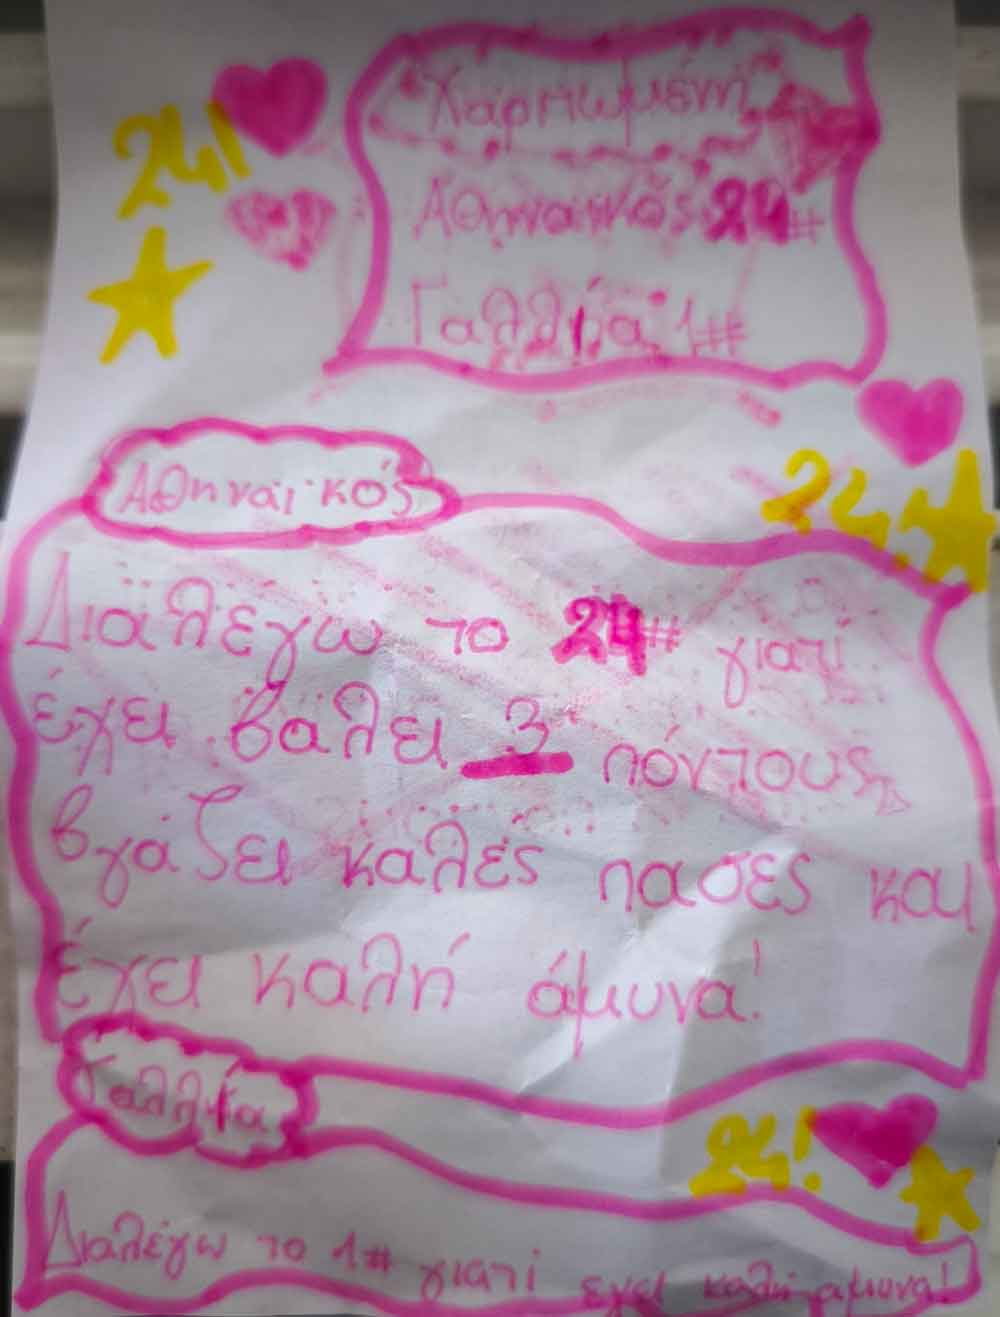 24!
Αθηναϊκός 24#
Γαλλία 1#
24!
Αθηναϊκός
Διαλέγω το 24# γιατί
έχει βάλει 3 πόντους,
βγάζει καλές πάσες και
έχει καλή άμυνα!
Γαλλία
24!
Διαλέγω το 1# γιατί έχει καλή άμυνα!